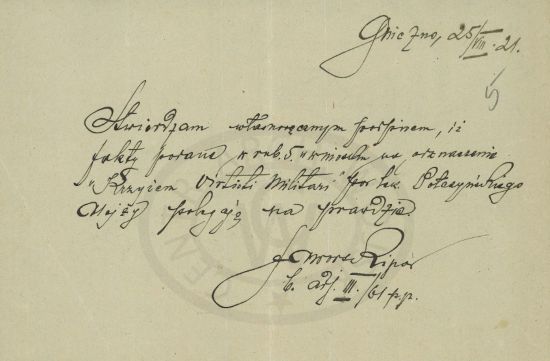 Gniezno, 25/VIII. 21.
5
Stwierdzam własnoręcznym podpisem, iż
fakty podane w rub. 5. "wniosku na odznaczenie
"Krzyżem Virtuti Militari" por. lek.
Alojzy polegają na prawdzie.
b. adj. III./61 p.p.